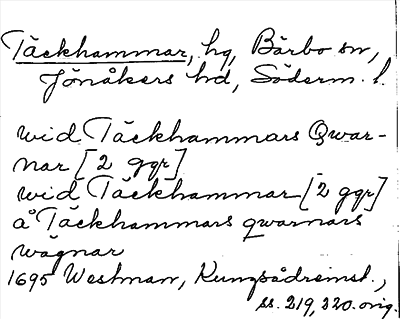 Täckhammar, hg, Bärbo sn,
Jönåkers hd, Söderm. l.
wid Täckhammars Qwar-
nar [2 ggr]
wid Täckhammar [2 ggr]
å Täckhammars qwarnars
wägnar
1695 Westman, Kungsådremst.,
ss. 219, 220. orig.